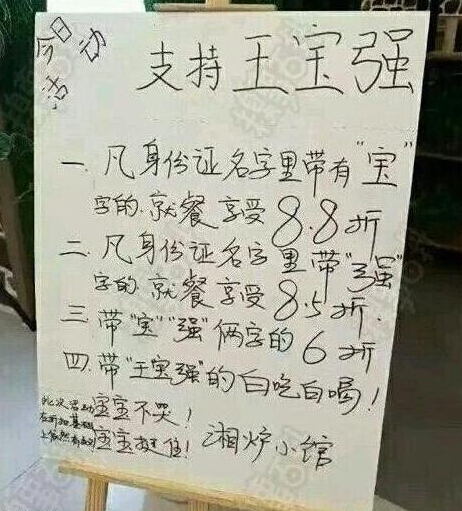 今日活动
支持王宝强
一.凡身份证名字里带有"宝"
字的.就餐享受8.8折
二.凡身份证名字里带"强"
字的.就餐享受8.5折.
三.带"宝""强"俩字的6折
四.带"王宝强"的白吃白喝！
此次活动
宝宝不哭！
在折扣基础
上依然有效
宝宝挺住！
湘炉小馆